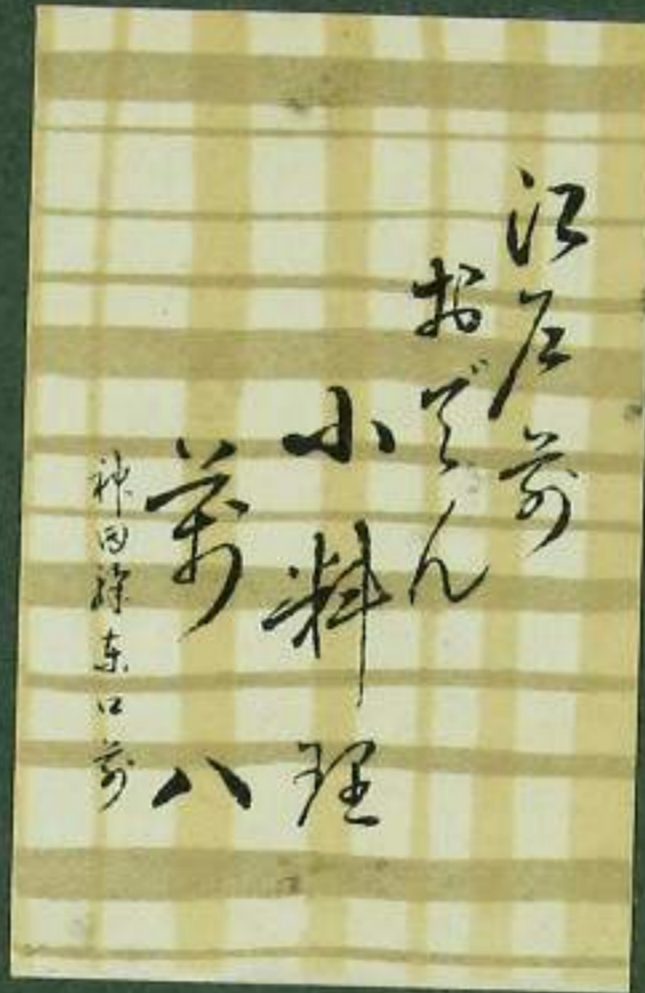 江戸前
おでん
小料理
萬八
神田驛東口前